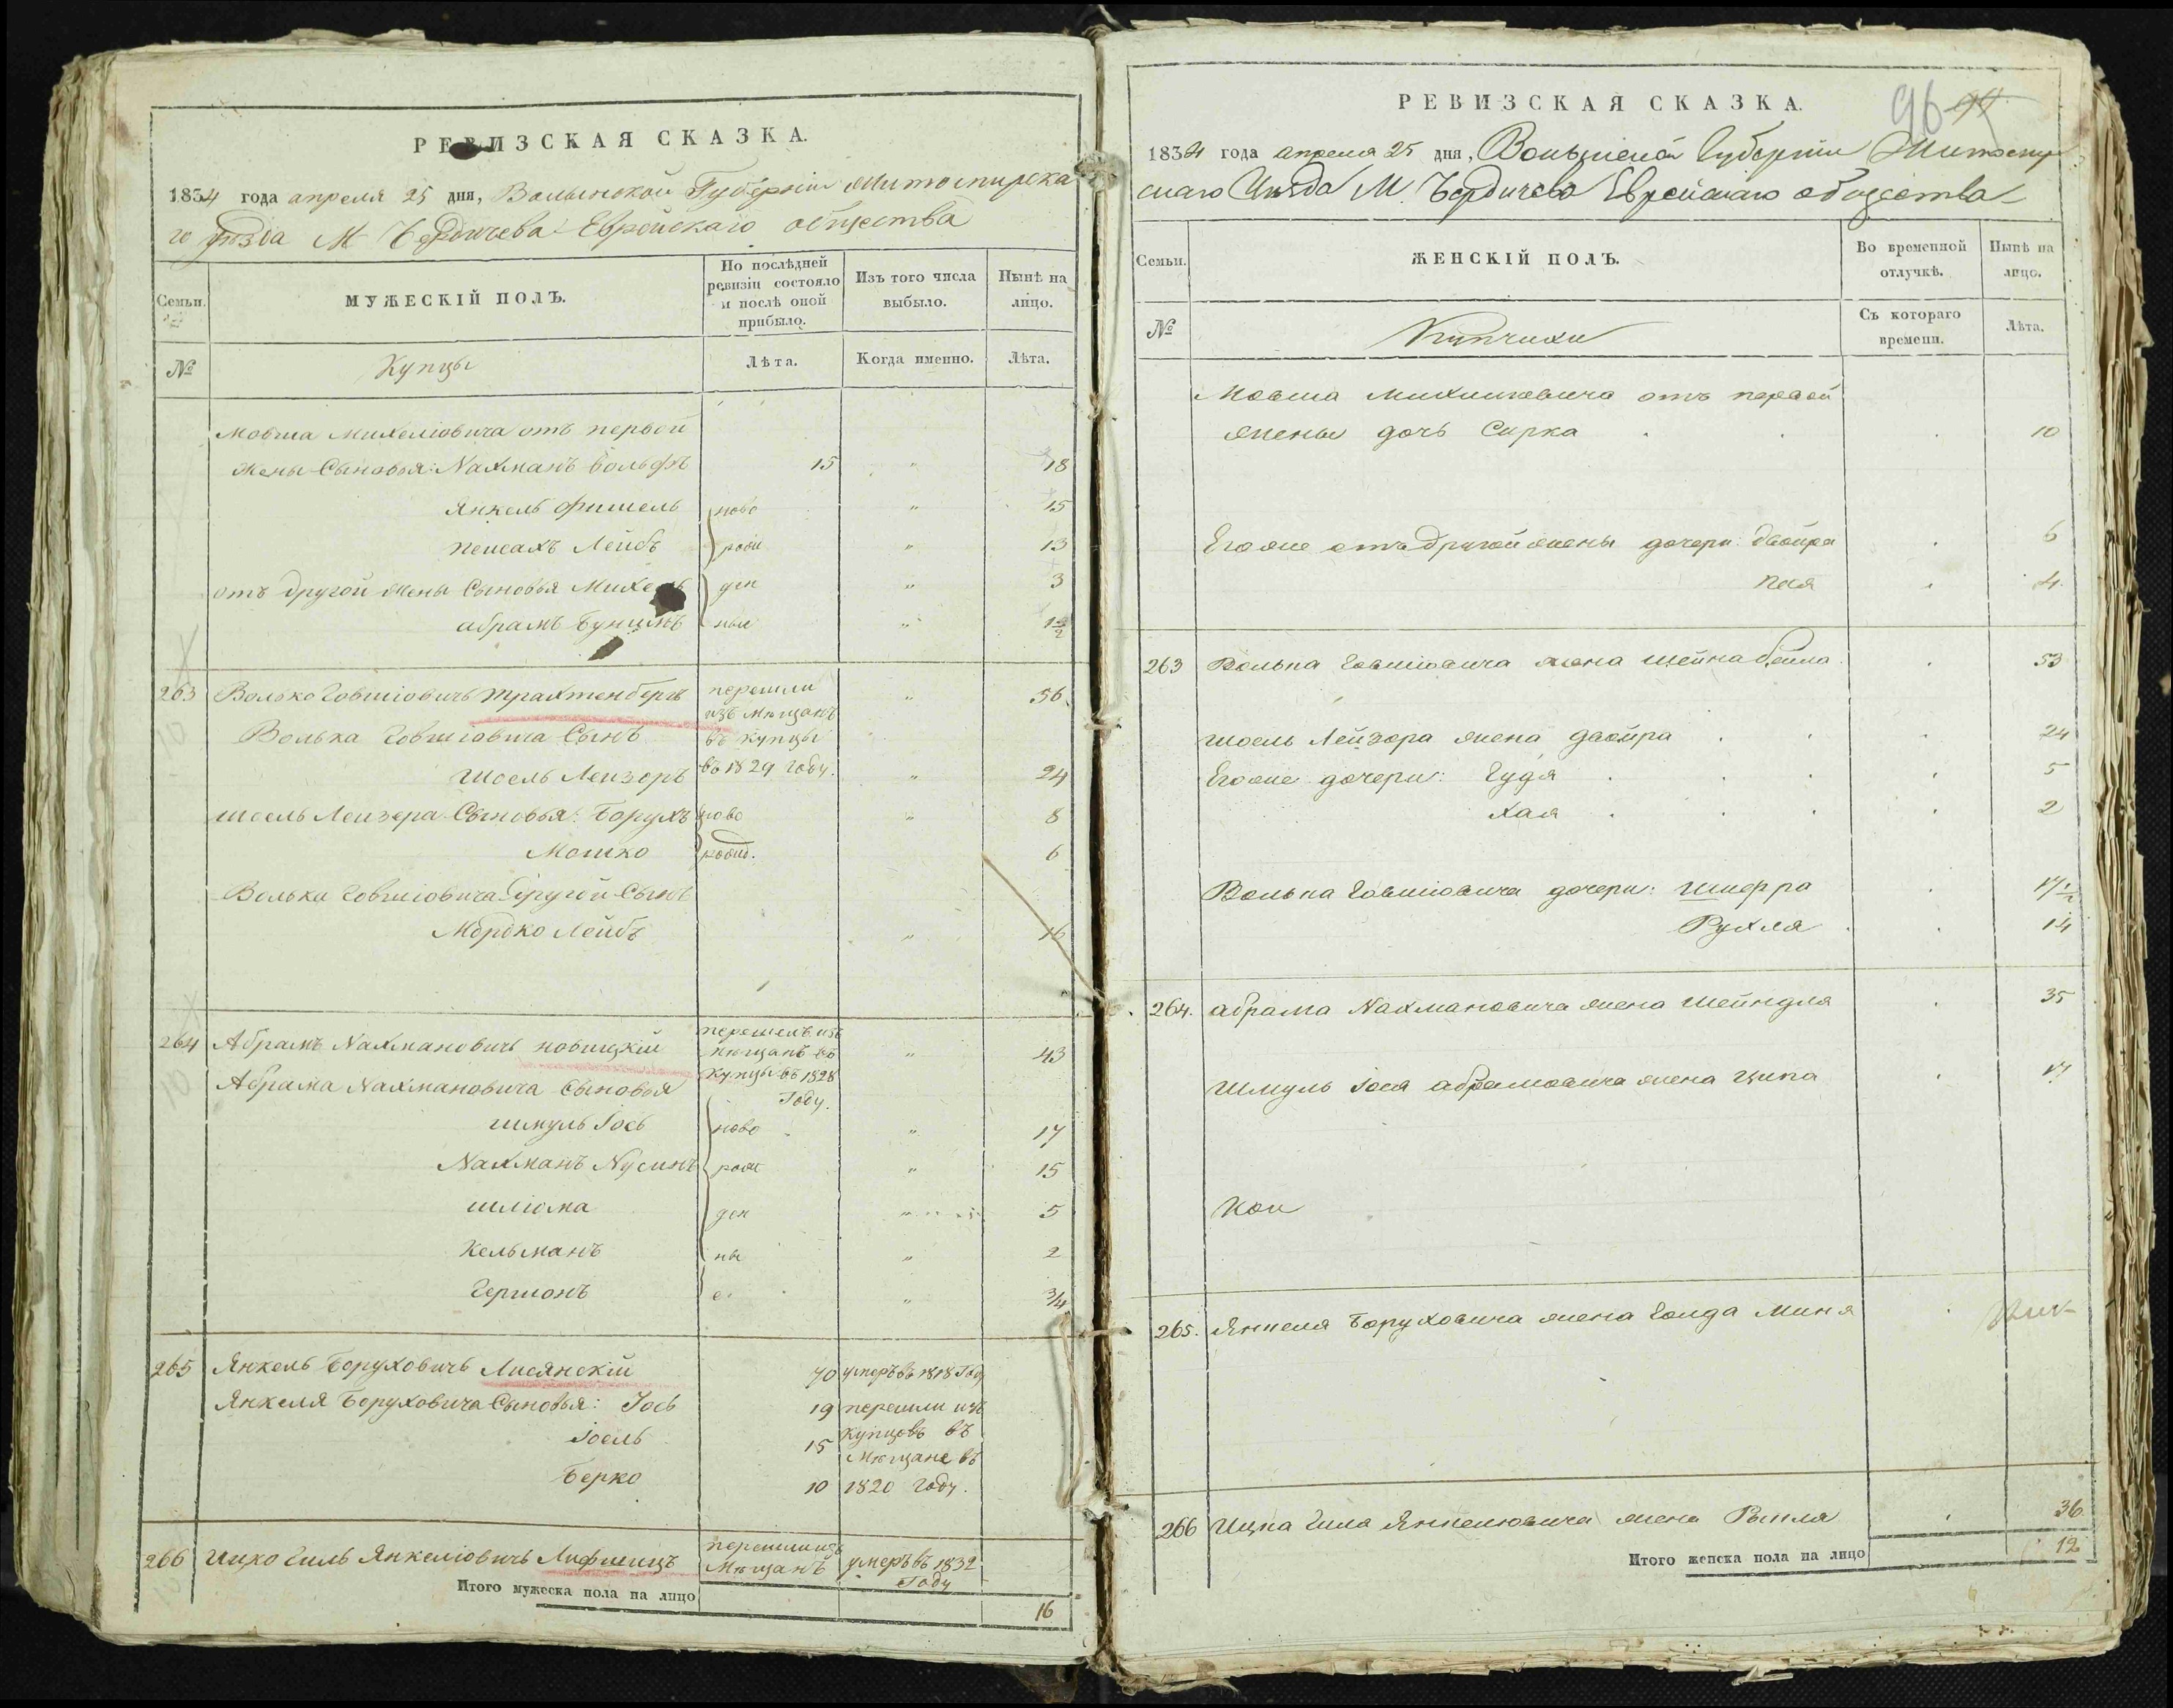 РЕВИЗСКАЯ СКАЗКА.
1834 года апреля 25 дня, Волынской Губерніи Житомирска
го уѣзда М Бердичева Еврейскаго общества
Семьи.
МУЖЕСКІЙ ПОЛЪ.
По послѣдней ревизіи состояло и послѣ оной прибыло.
Изъ того числа выбыло.
Нынѣ на лицо.
№
Купцы
Лѣта.
Когда именно.
Лѣта.
Мовша Михеліовича отъ первой
жены Сыновья: Нахманъ Вольфъ 15 " 18
Янкель Фишель ново " 15
Пейсахъ Лейбъ рож " 13
отъ другой жены Сыновья Михель ден " 3
Абрамъ Бунимъ ные "
263 Волько Говшіовичъ Трахтенбергъ перешли " 56.
изъ мѣщанъ
Волька Говшіовича Сынъ въ купцы
Шоель Лейзоръ въ 1829 году. " 24
Шоель Лейзера Сыновья: Борухъ ново " 8
Мошко рожд. 6
Волька Говшіовича другой Сынъ
Мордко Лейбъ " 16
264 Абрамъ Нахмановичъ Новицкій перешелъ изъ мѣщанъ въ " 43
Абрама Нахмановича Сыновья купцы въ 1828 Году.
Шмуль Іось ново " 17
Нахманъ Нусинъ рож " 15
Шліома ден " 5
Кельманъ ны " 2
Гершонъ е. " 3/4
265 Янкель Боруховичъ Лисянскій 70 умеръ въ 1818 Году
Янкеля Боруховича Сыновья: Іось 19 перешли изъ
Іоель 15 купцовъ въ мѣщане въ
Берко 10 1820 году.
266 Ицко Гиль Янкеліовичъ Лифшицъ перешли изъ мѣщанъ умеръ въ 1832 Году
Итого мужеска пола на лицо 16
РЕВИЗСКАЯ СКАЗКА.
96 94
1834 года апреля 25 дня, Волынской Губерніи Житомир
скаго Уѣзда М. Бердичева Еврейскаго общества
Семьи.
ЖЕНСКІЙ ПОЛЪ.
Во временной отлучкѣ.
Нынѣ на лицо.
№
Купчихи
Съ котораго времени.
Лѣта.
Мовша Михеліовича отъ первой
жены дочь Сирка 10
Его же отъ другой жены дочери: Двойра 6
Песя 4.
263 Волька Говшіовича жена Шейна Бейла 53
Шоель Лейзора жена Двойра 24
Его же дочери: Гудя 5
Хая 2
Волька Говшіовича дочери: Шифра 17 1/2
Рухля 14
264. Абрама Нахмановича жена Шейндля 35
Шмуль Іося Абрамовича жена Ципа 17
Кои
265. Янкеля Боруховича жена Голда Миня
266 Ицка Гиля Янкеліовича жена Рыкля 36
Итого женска пола на лицо 12